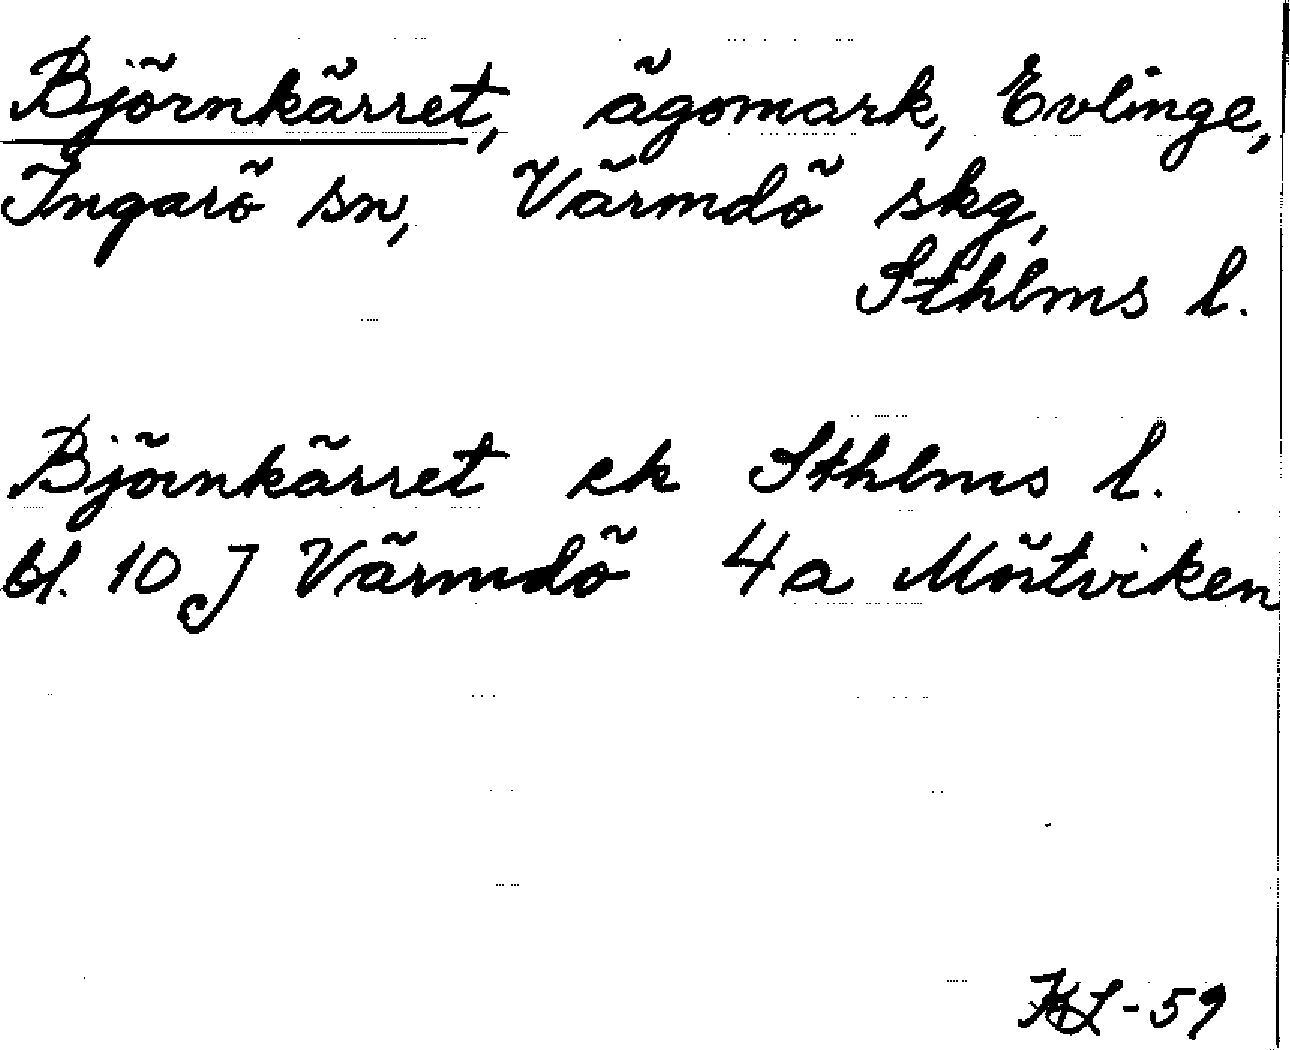 Björnkärret, ägomark, Evlinge,
Ingarö sn, Värmdö skg,
Sthlms l.
Björnkärret ek Sthlms l.
bl. 10 J Värmdö 4a Mörtviken
-59